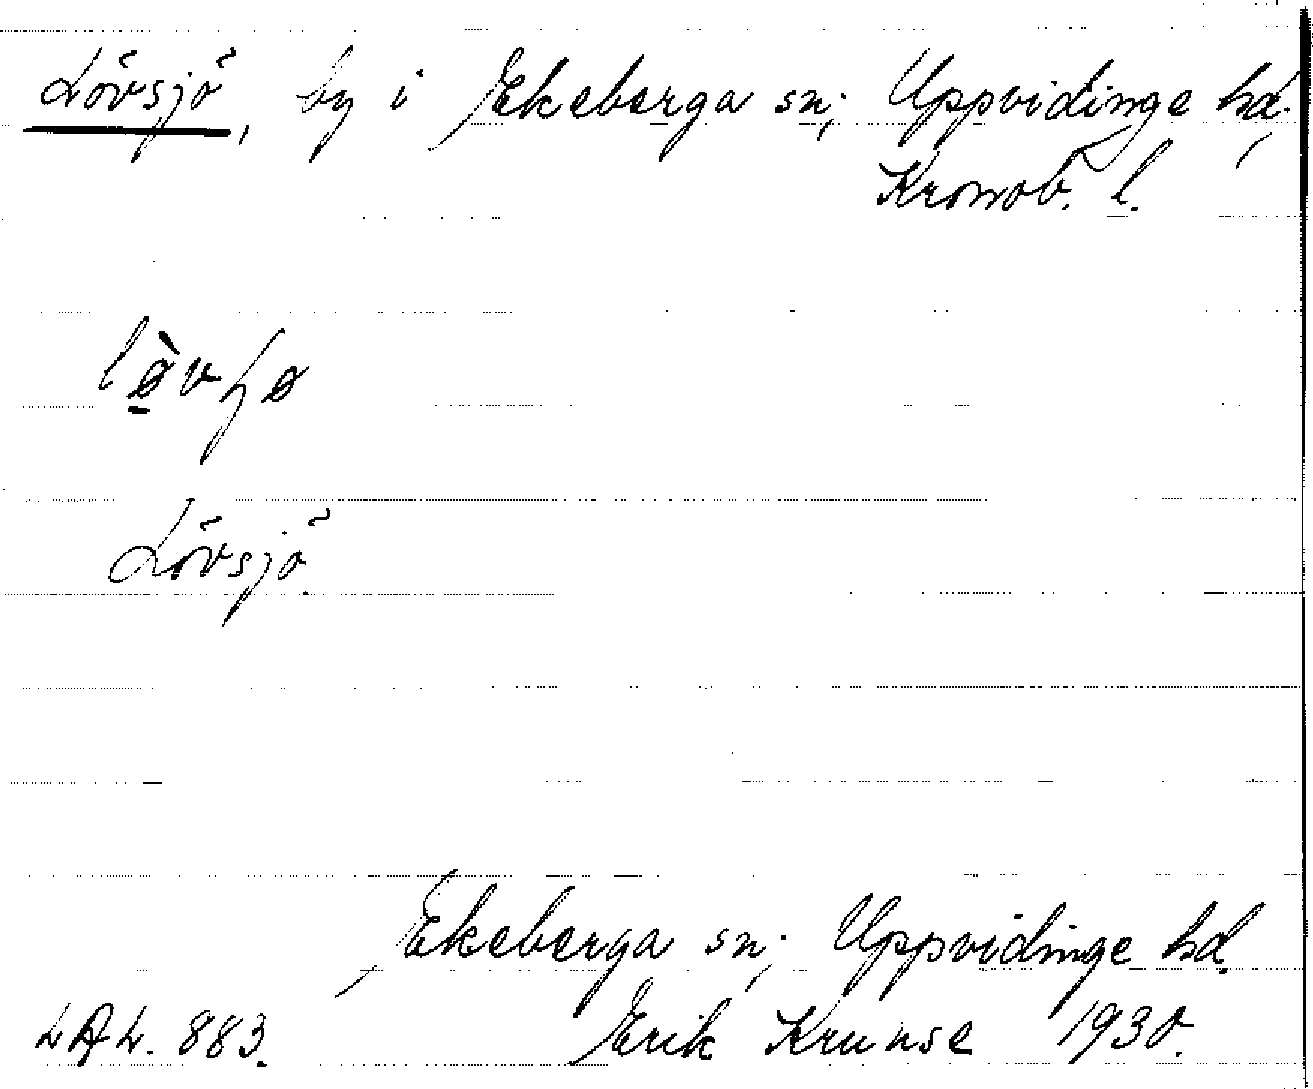 Lövsjö, by i Ekeberga sn; Uppvidinge hd.
Kronob. l.
Lövsjö
Ekeberga sn; Uppvidinge hd.
LAL. 883. Erik Krunse 1930.